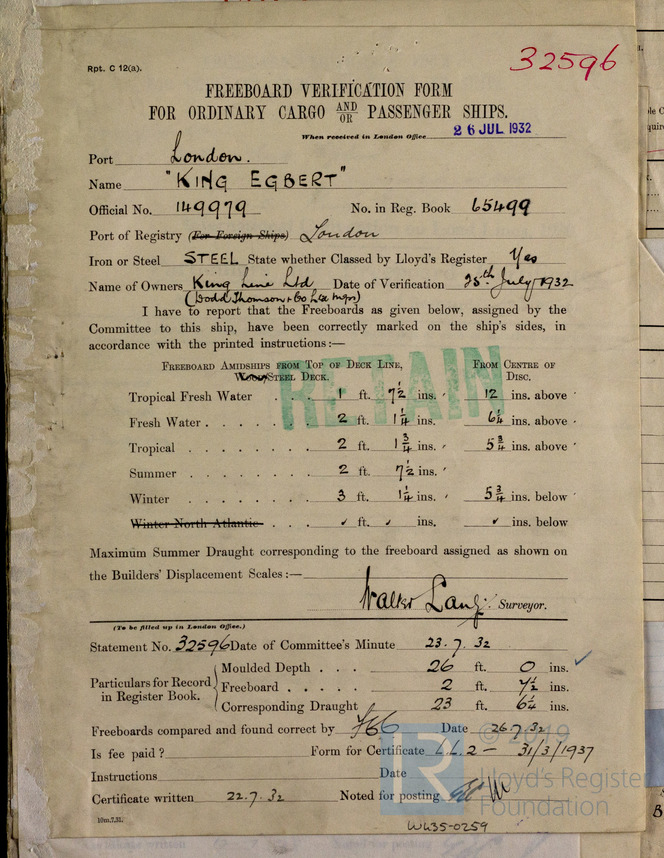 Rpt. C 12(a).
32596
FREEBOARD VERIFICATION FORM
FOR ORDINARY CARGO AND/OR PASSENGER SHIPS.
When received in London Office 26 JUL 1932
Port London.
Name "KING EGBERT"
Official No. 149979 No. in Reg. Book 65499
Port of Registry (For Foreign Ships) London
Iron or Steel STEEL State whether Classed by Lloyd's Register Yes
Name of Owners King Line Ltd Date of Verification 25th July 1932
(Dodd Thomson & Co Ltd Mgrs)
I have to report that the Freeboards as given below, assigned by the
Committee to this ship, have been correctly marked on the ship's sides, in
accordance with the printed instructions:—
RETAIN
FREEBOARD AMIDSHIPS FROM TOP OF DECK LINE, FROM CENTRE OF
WOOD/STEEL DECK. DISC.
Tropical Fresh Water . . . 1 ft. 7½ ins. 12 ins. above
Fresh Water . . . . . . . 2 ft. 1¼ ins. 6¼ ins. above
Tropical . . . . . . . . 2 ft. 1¾ ins. 5¾ ins. above
Summer . . . . . . . . 2 ft. 7½ ins.
Winter . . . . . . . . 3 ft. 1¼ ins. 5¾ ins. below
Winter North Atlantic . . . ✓ ft. ✓ ins. ✓ ins. below
Maximum Summer Draught corresponding to the freeboard assigned as shown on
the Builders' Displacement Scales :—
Walter Lang Surveyor.
(To be filled up in London Office.)
Statement No. 32596 Date of Committee's Minute 23.7.32
Particulars for Record in Register Book.
Moulded Depth . . . 26 ft. 0 ins. ✓
Freeboard . . . . . 2 ft. 7½ ins.
Corresponding Draught 23 ft. 6¼ ins.
Freeboards compared and found correct by Date 26.7.32
Is fee paid ? Form for Certificate LL 2 – 31/3/1937
Instructions Date
Certificate written 22.7.32 Noted for posting
10m.7.31.
WL35-0259
© 2019
LR Lloyd's Register
Foundation